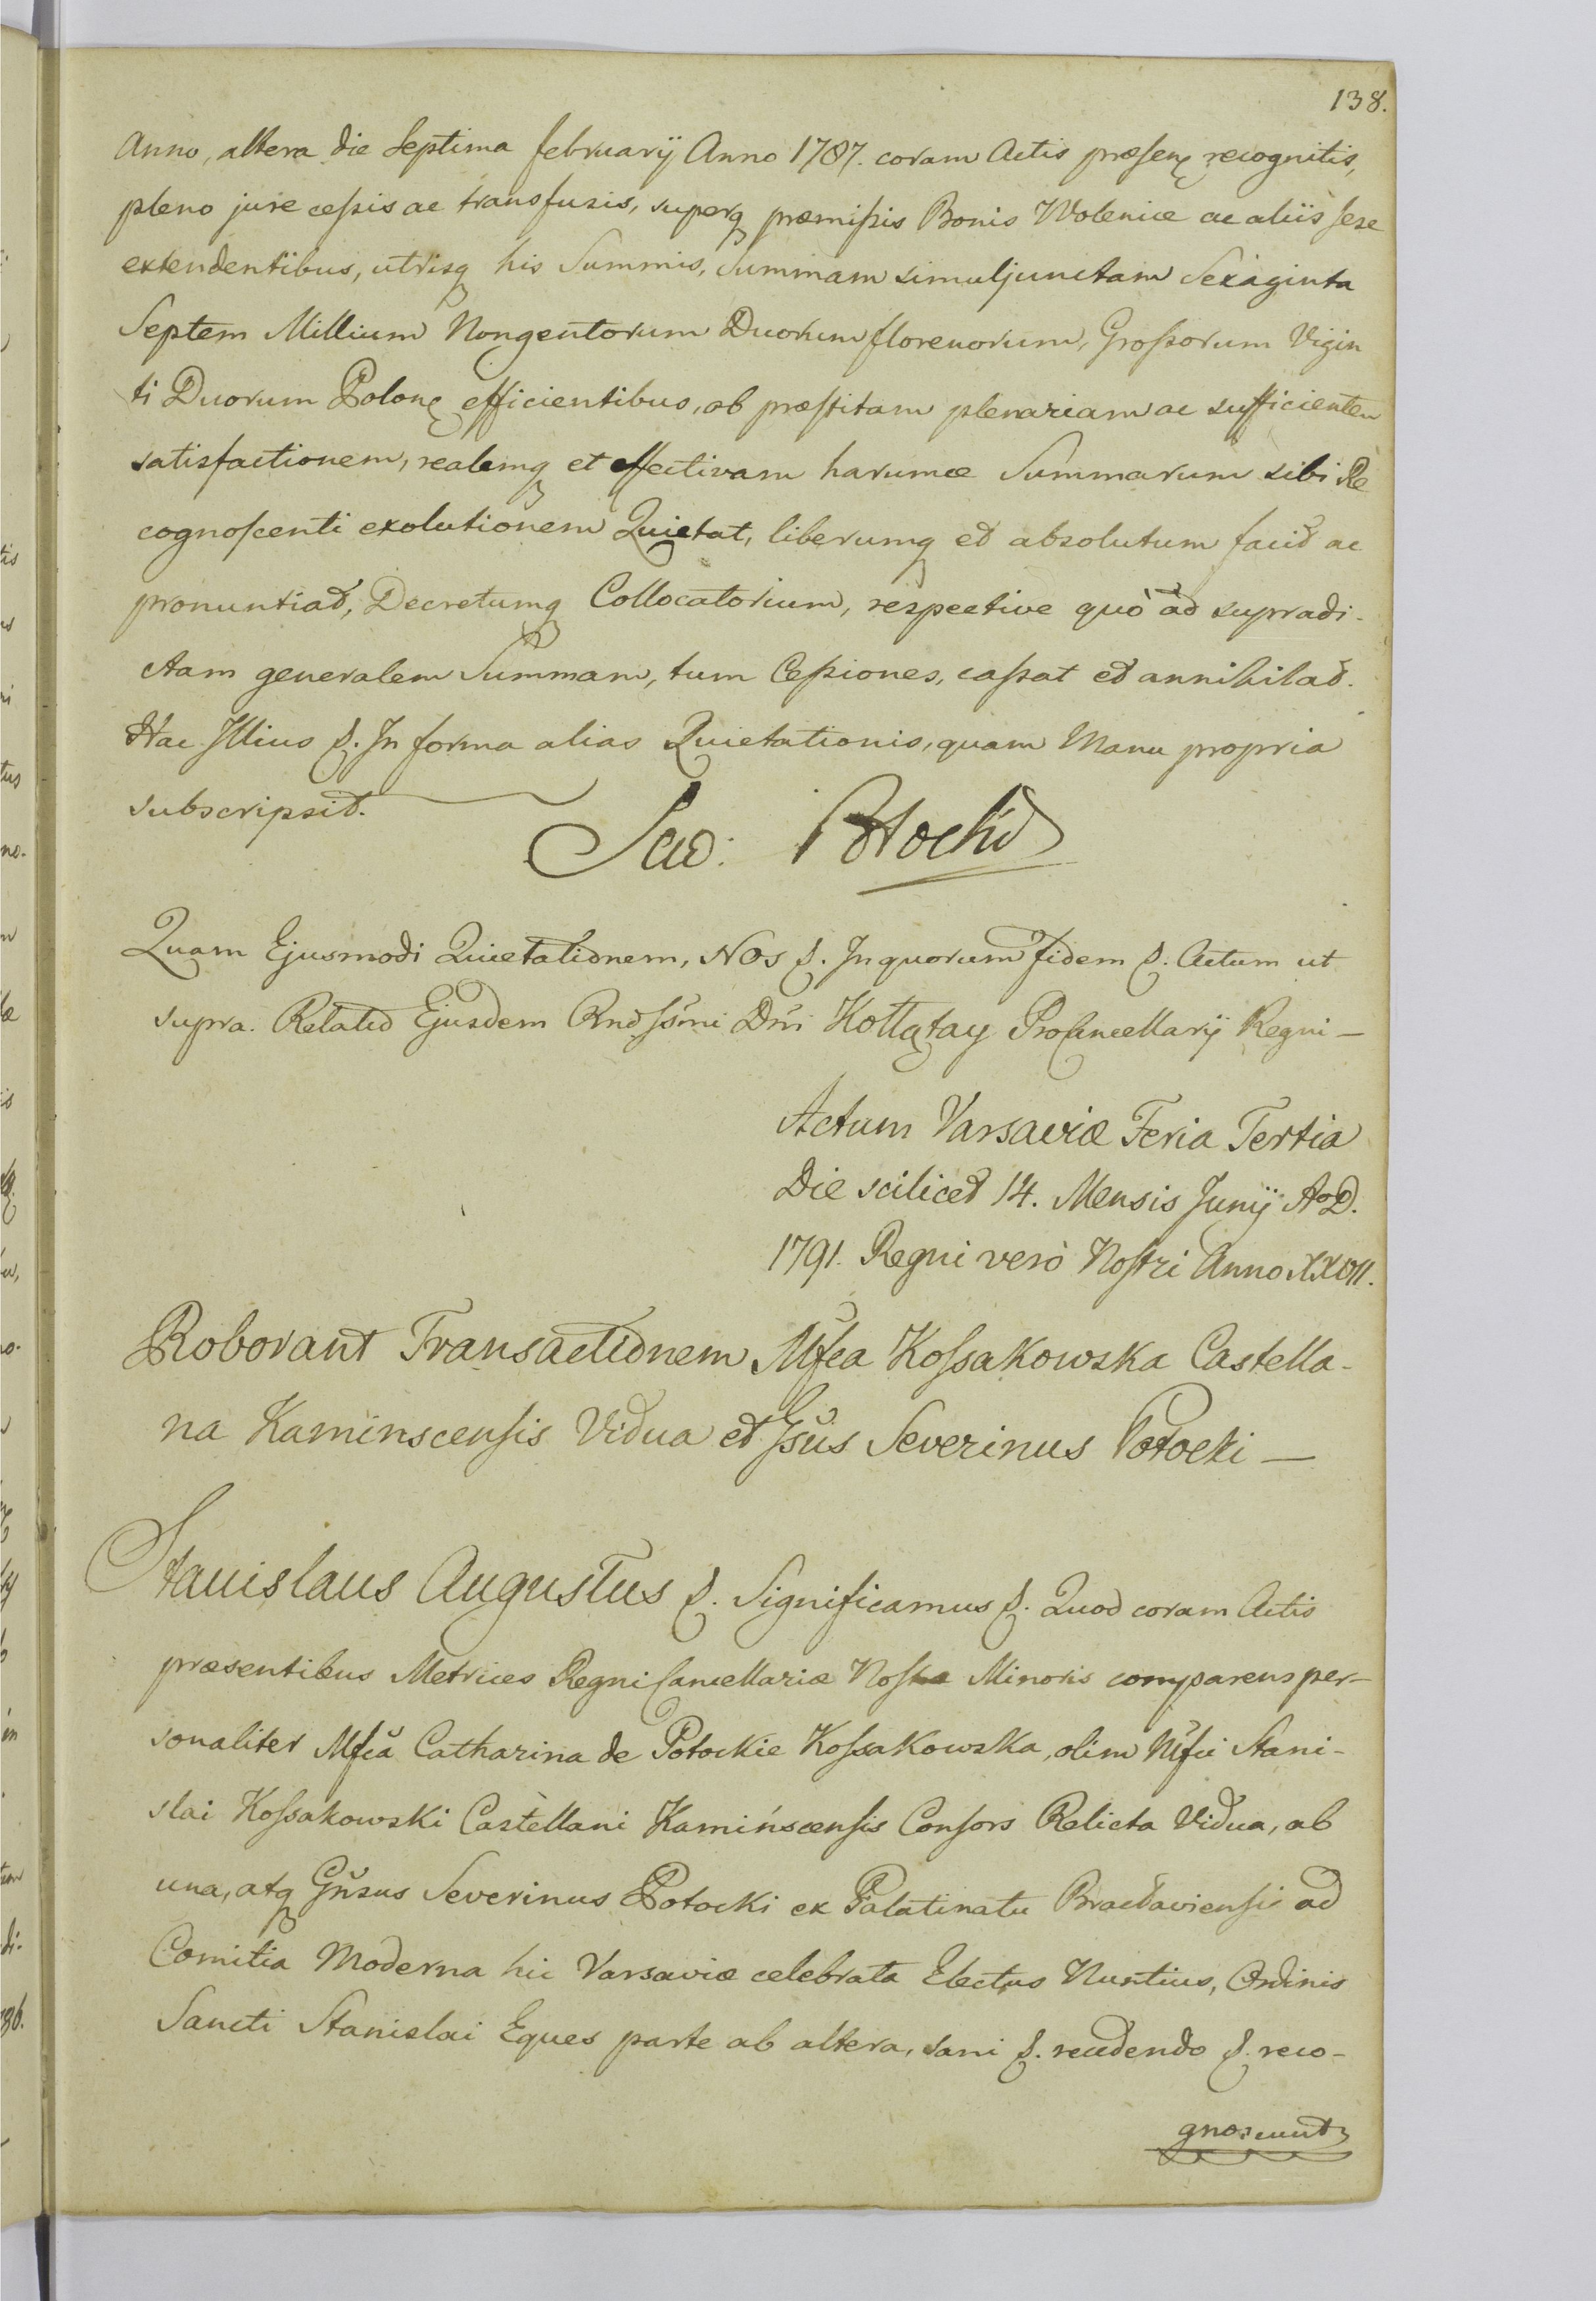 138.
Anno, altera die Septima februarij Anno 1787. coram Actis præsenꝫ recognitis,
pleno jure cessis ac transfusis, superq præmissis Bonis Wolenice ac aliis sese
extendentibus, utrisq his Summis, Summam simuljunctam Sexaginta
Septem Millium Nongentorum Duorum florenorum, Grossorum Vigin
ti Duorum Polonꝫ efficientibus, ob præstitam plenariam ac sufficientem
satisfactionem, realemq et effectivam harumce Summarum sibi Re
cognoscenti exolutionem Quietat, liberumq et absolutum facit ac
pronuntiat, Decretumq Collocatorium, respective quò ad supradi-
ctam generalem Summam, tum Cessiones, cassat et annihilat.
Hac Illius &. In forma alias Quietationis, quam Manu propria
subscripsit.
Potocki
Quam Ejusmodi Quietationem, Nos &. Inquorum fidem &. Actum ut
supra. Relatio Ejusdem Rndssmi Dni Kołłątay ProCancellarij Regni —
Actum Varsaviæ Feria Tertia
Die scilicet 14. Mensis Junij AoD.
1791. Regni verò Nostri Anno XXVII.
Roborant Transactionem Mfca Kossakowska Castella-
na Kaminscensis Vidua et Gsus Severinus Potocki —
Stanislaus Augustus &. Significamus &. Quod coram Actis
præsentibus Metrices Regni Cancellariæ Nostræ Minoris comparens per-
sonaliter Mfca Catharina de Potockie Kossakowska, olim Mfci Stani-
slai Kossakowski Castellani Kamińscensis Consors Relicta Vidua, ab
una, atq Gnsus Severinus Potocki ex Palatinatu Bracłaviensi ad
Comitia Moderna hic Varsaviæ celebrata Electus Nuntius, Ordinis
Sancti Stanislai Eques parte ab altera, sani &. recedendo &. reco-
gnoscunt